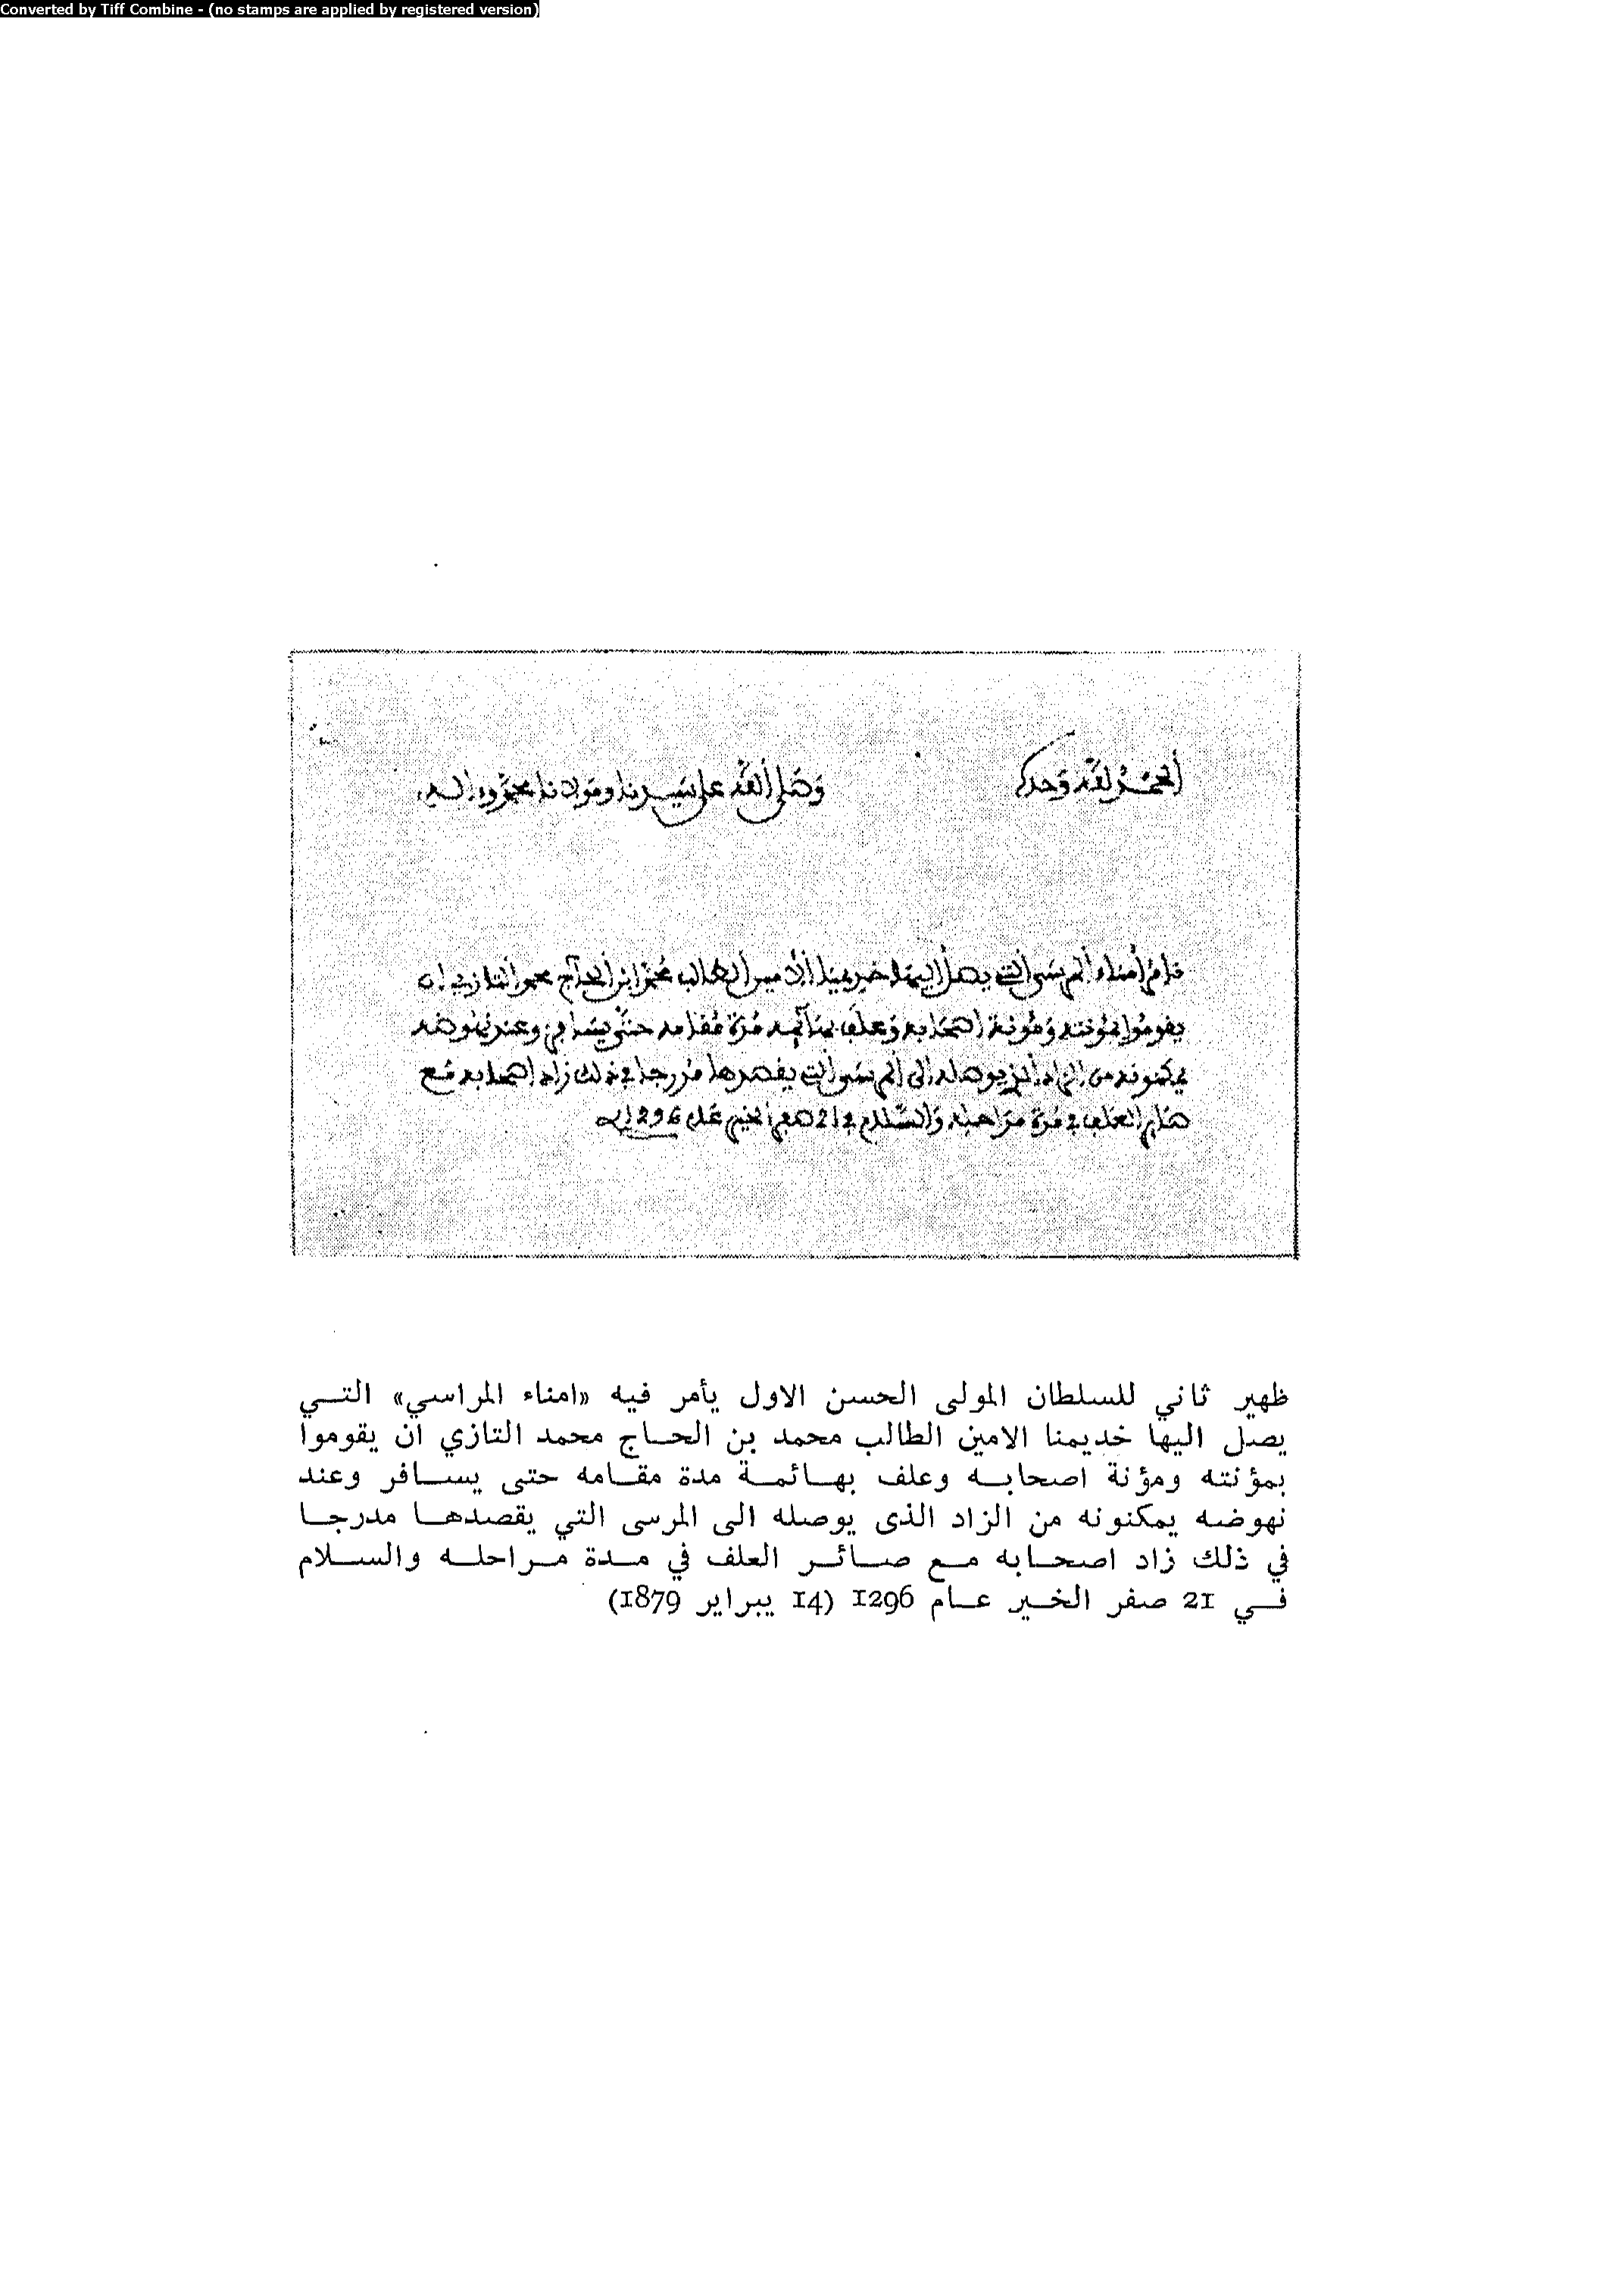 Converted by Tiff Combine - (no stamps are applied by registered version)
الحمد لله وحده
وصلى الله على سيدنا ومولانا محمد وءاله
نامر أمناء المرسى التي يصل إليها خديمنا الأمين الطالب محمد ابن الحاج محمد التازي ان
يقوموا بمونته ومونة اصحابه وعلف بهائمه مدة مقامه حتى يسافر وعند نهوضه
يمكنونه من الزاد الذي يوصله إلى المرسى التي يقصدها مدرجا في ذلك زاد اصحابه مع
صاير العلف في مدة مراحله والسلام في 21 صفر الخير عام 1296
ظهير ثاني للسلطان المولى الحسن الاول يأمر فيه «امناء المراسي» التي
يصل اليها خديمنا الامين الطالب محمد بن الحاج محمد التازي ان يقوموا
بمؤنته ومؤنة اصحابه وعلف بهائمة مدة مقامه حتى يسافر وعند
نهوضه يمكنونه من الزاد الذى يوصله الى المرسى التي يقصدها مدرجا
في ذلك زاد اصحابه مع صائر العلف في مدة مراحله والسلام
في 21 صفر الخير عام 1296 (14 يبراير 1879)